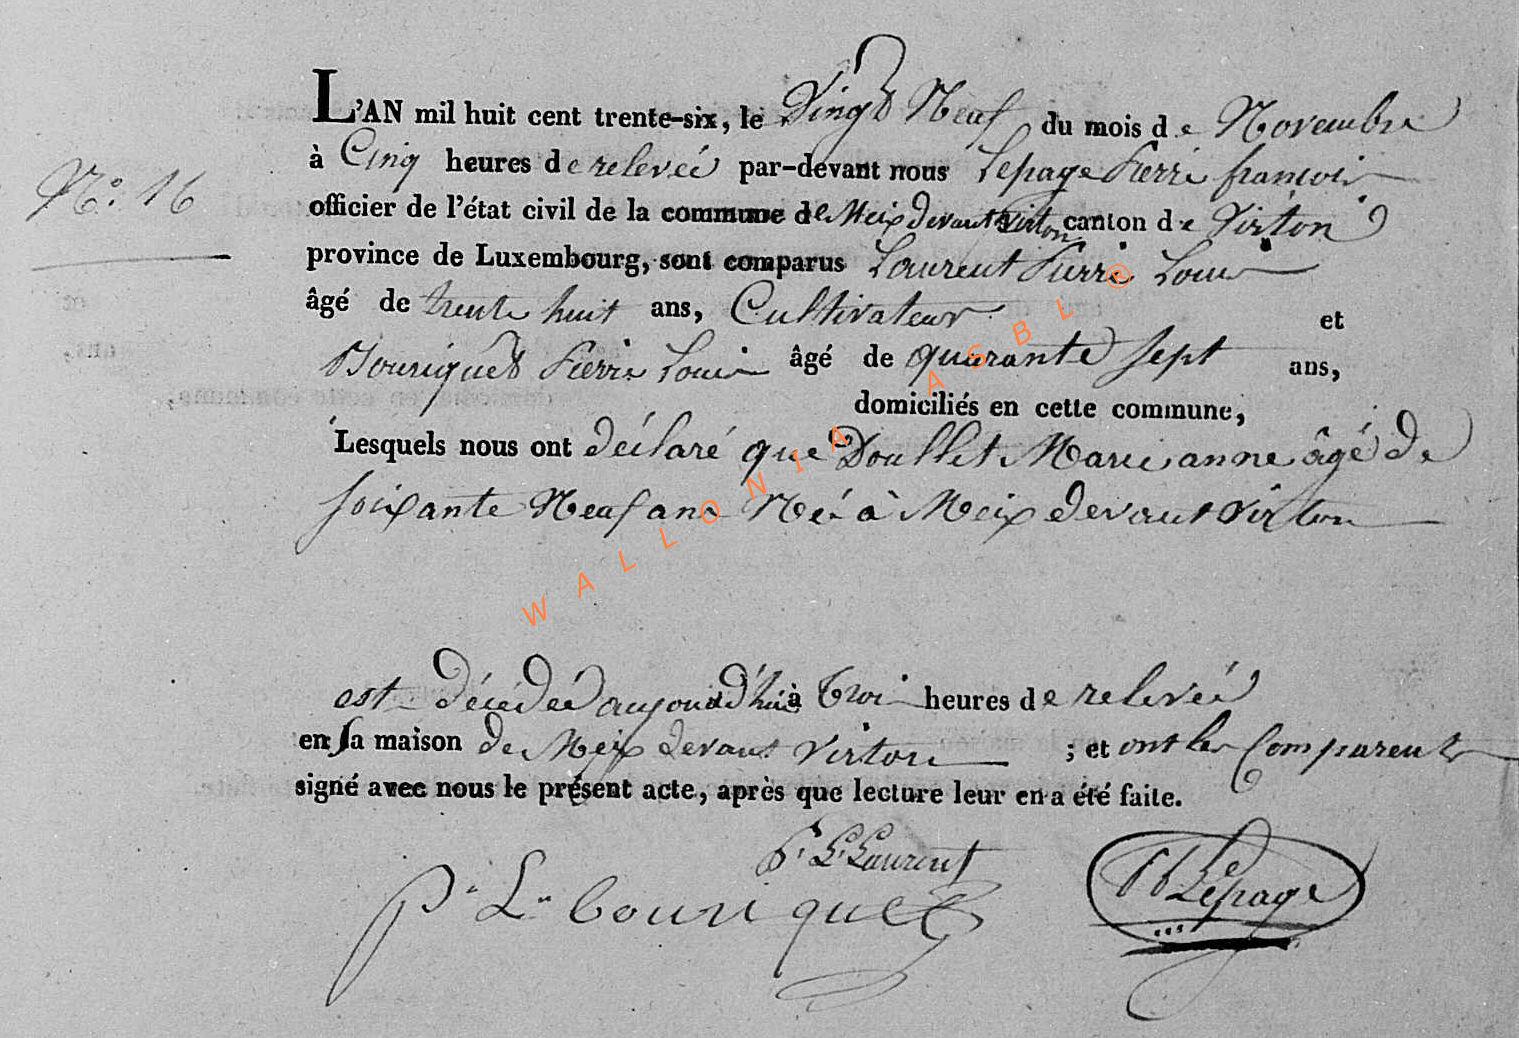 L'AN mil huit cent trente-six, le Vingt Neuf du mois de Novembre
N.° 16
à Cinq heures de relevée par-devant nous Lepage Pierre françois
officier de l'état civil de la commune de Meix devant virton canton de Virton
province de Luxembourg, sont comparus Laurent Pierre Louis
âgé de trente huit ans, Cultivateur et
Bouriquet Pierre Louis âgé de quarante sept ans,
domiciliés en cette commune,
Lesquels nous ont déclaré que Doullet Marie anne âgé de
soixante Neuf ans Né à Meix devant virton
est décédée aujourd'hui à trois heures de relevée
en sa maison de Meix devant virton ; et ont les Comparents
signé avec nous le présent acte, après que lecture leur en a été faite.
P. L. Laurent
P. L. bouriquet
Lepage
WALLONIA ASBL ©